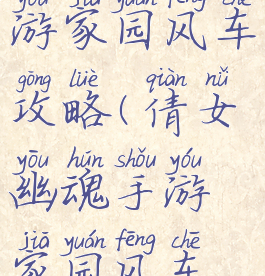 yóu jiā yuán fēng chē
游家园风车
gōng lüè qiàn nǚ
攻略(倩女
yōu hún shǒu yóu
幽魂手游
jiā yuán fēng chē
家园风车